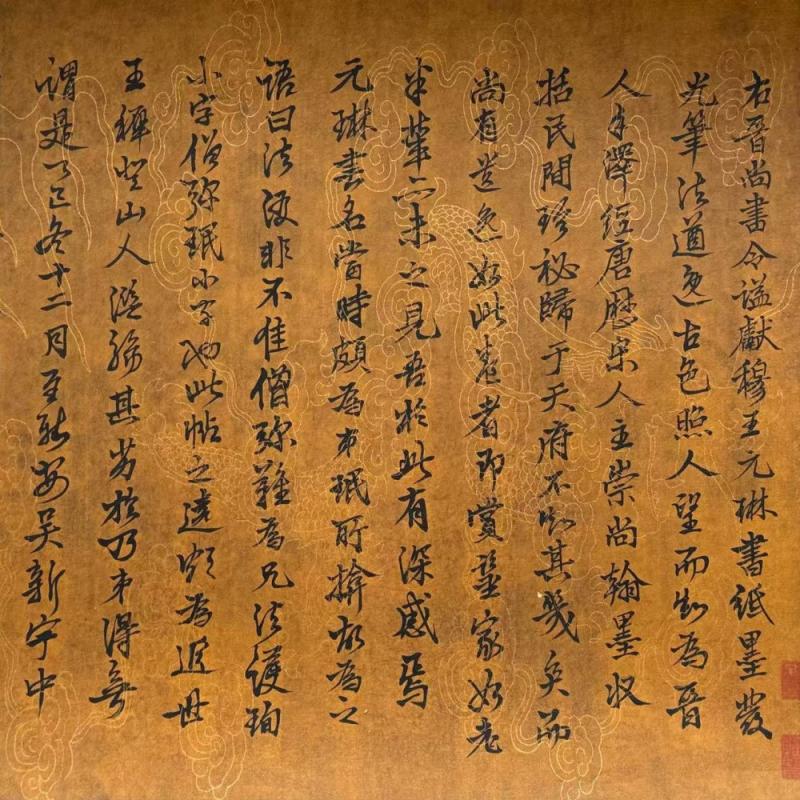 右晉尚書令謚獻穆王元琳書紙墨發
光筆法遒逸古色照人望而知為晉
人手澤經唐歷宋人主崇尚翰墨收
括民間珍秘歸于天府不知其幾矣而
尚有遺逸如此卷者即賞鑒家如老
米輩亦未之見吾於此有深感焉
元琳書名當時頗為弟珉所揜故為之
語曰法護非不佳僧彌難為兄法護珣
小字僧彌珉小字也此帖之為近世
王穉登山人其劣於乃弟得無
謂是乙巳冬十二月至新安吳新宇中